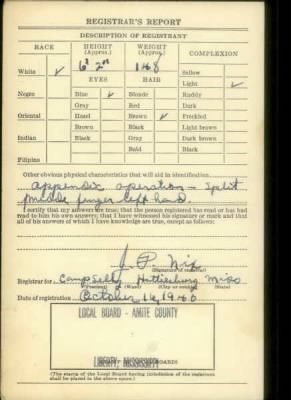 REGISTRAR'S REPORT
DESCRIPTION OF REGISTRANT
RACE HEIGHT (Approx.) WEIGHT (Approx.) COMPLEXION
6' 2" 148
White ✓ Sallow
EYES HAIR Light ✓
Negro Blue ✓ Blonde Ruddy
Gray Red Dark
Oriental Hazel Brown ✓ Freckled
Brown Black Light brown
Indian Black Gray Dark brown
Bald Black
Filipino
Other obvious physical characteristics that will aid in identification
appendix operation - split
middle finger left hand.
I certify that my answers are true; that the person registered has read or has had
read to him his own answers; that I have witnessed his signature or mark and that
all of his answers of which I have knowledge are true, except as follows:
J. P. Nix
(Signature of registrar)
Registrar for Camp Shelby Hattiesburg Miss
(Precinct) (Ward) (City or county) (State)
Date of registration October 16, 1940
LOCAL BOARD - AMITE COUNTY
LIBERTY, MISSISSIPPI
(The stamp of the Local Board having jurisdiction of the registrant
shall be placed in the above space.)